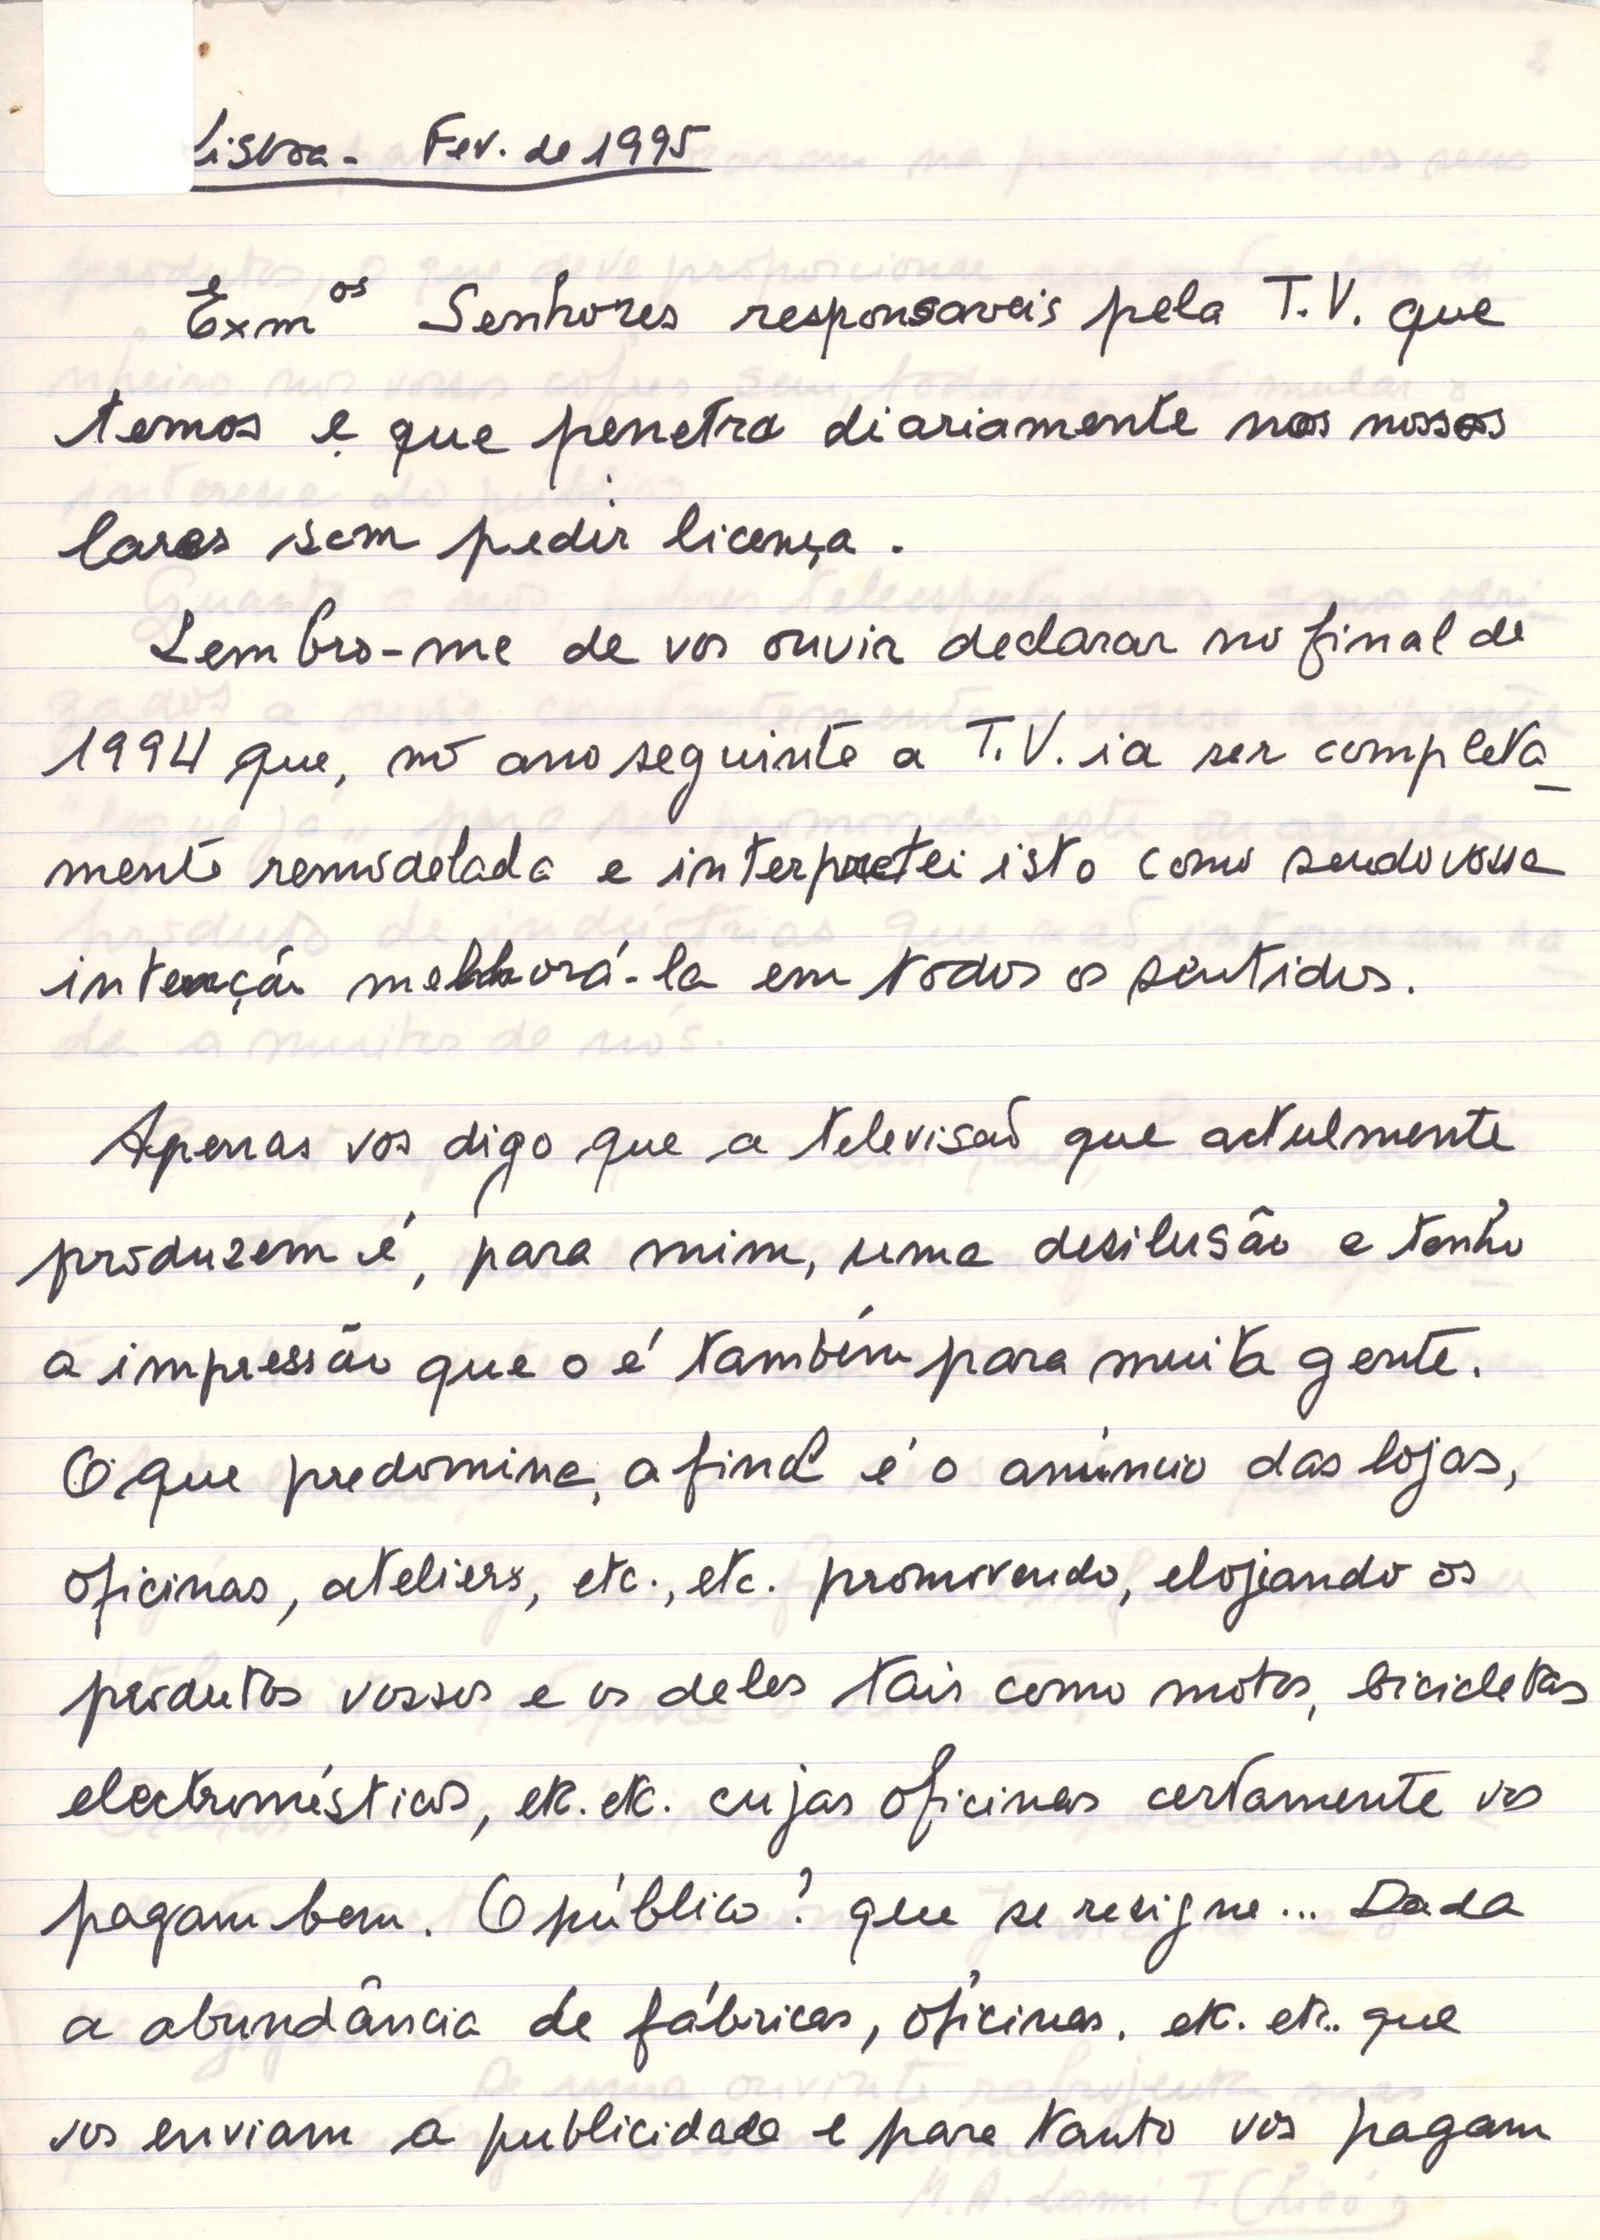 Lisboa - Fev. de 1995
Exmos Senhores responsaveis pela T.V. que
temos e que penetra diariamente nos nossos
lares sem pedir licença.
Lembro-me de vos ouvir declarar no final de
1994 que, no ano seguinte a T.V. ia ser completa-
mente remodelada e interpretei isto como sendo vossa
intenção melhorá-la em todos os sentidos.
Apenas vos digo que a televisão que actulmente
produzem é, para mim, uma desilusão e tenho
a impressão que o é também para muita gente.
O que predomina, afinal é o anúncio das lojas,
oficinas, ateliers, etc., etc. promovendo, elojiando os
produtos vossos e os deles tais como motos, bicicletas
electromésticos, etc. etc. cujas oficinas certamente vos
pagam bem. O público? que se resigne... Dada
a abundância de fábricas, oficinas, etc. etc.. que
vos enviam a publicidade e para tanto vos pagam